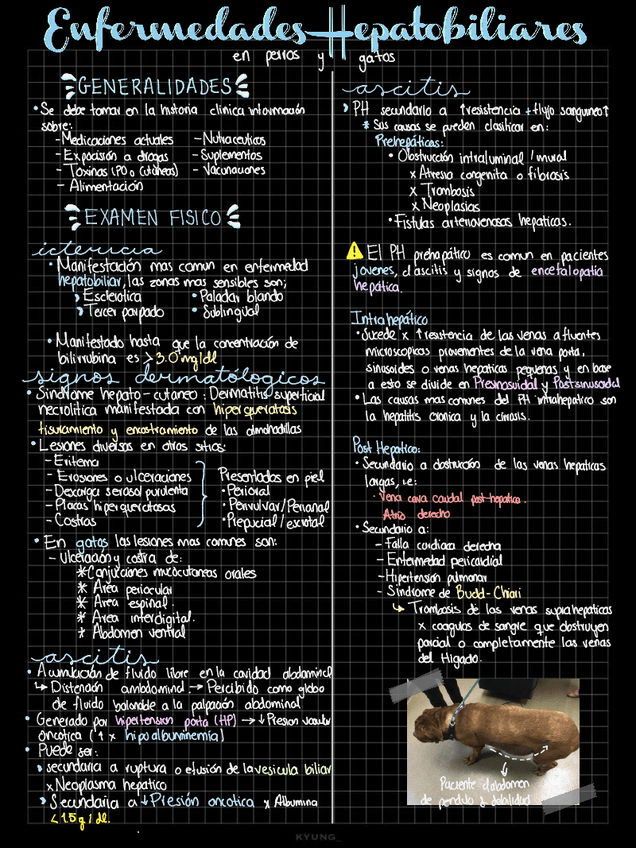 Enfermedades Hepatobiliares
en perros y gatos
GENERALIDADES
• Se debe tomar en la historia clinica información
sobre:
- Medicaciones actuales - Nutraceuticos
- Exposición a drogas - Suplementos
- Toxinas (PO o cutáneas) - Vacunaciones
- Alimentación
EXAMEN FISICO
ictericia
• Manifestación mas comun en enfermedad
hepatobiliar, las zonas mas sensibles son;
Esclerotica • Paladar blando
Tercer parpado • Sublingual
• Manifestado hasta que la concentración de
bilirrubina es > 3.0 mg/dl
signos dermatológicos
• Sindrome hepato-cutaneo: Dermatitis superficial
necrolitica manifestada con hiperqueratosis
fisuramiento y encostramiento de las almohadillas
• Lesiones diversas en otros sitios:
- Eritema
- Erosiones o ulceraciones
- Descarga serosa/purulenta
- Placas hiperqueratosas
- Costras
Presentadas en piel
• Perioral
• Pervulvar/Perianal
• Prepucial/escrotal
• En gatos las lesiones mas comunes son:
- Ulceración y costra de:
* Conjuciones mucocutaneas orales
* Area periocular
* Area espinal.
* Area interdigital.
* Abdomen ventral
ascitis
• Acumulación de fluido libre en la cavidad abdominal
↳ Distensión ambdominal → Percibido como globo
de fluido balonable a la palpación abdominal
• Generado por hipertension porta (HP) → ↓ Presion vascular
oncotica (↑ x hipoalbuminemia)
• Puede ser:
secundaria a ruptura o efusión de la vesicula biliar
x Neoplasma hepatico
Secundaria a ↓ Presión oncotica x Albumina
< 1.5 g/dl.
ascitis
PH secundario a ↑resistencia + flujo sanguineo↑
* Sus causas se pueden clasificar en:
Prehepáticas:
• Obstrucción intraluminal / mural
x Atresia congenita o fibrosis
x Trombosis
x Neoplasias
• Fistulas arteriovenosas hepaticas.
El PH prehepático es comun en pacientes
jóvenes, c/ascitis y signos de encefalopatía
hepática.
Intrahepático
• Sucede x ↑ resistencia de las venas afluentes
microscopicas provenientes de la vena porta,
sinusoides o venas hepaticas pequeñas y en base
a esto se divide en Presinosuidal y Postsinusoidal
• Las causas mas comunes del PH intrahepatico son
la hepatitis cronica y la cirrosis.
Post Hepatico:
• Secundario a obstrucción de las venas hepaticas
largas, i.e:
• Vena cava caudal post-hepatica.
Atrio derecho
• Secundario a:
- Falla cardiaca derecha
- Enfermedad pericardial
- Hipertensión pulmonar
- Síndrome de Budd-Chiari
↳ Trombosis de las venas suprahepaticas
x coagulos de sangre que obstruyen
parcial o completamente las venas
del Higado.
Paciente c/abdomen
de pendulo y debilidad
KYUNG_